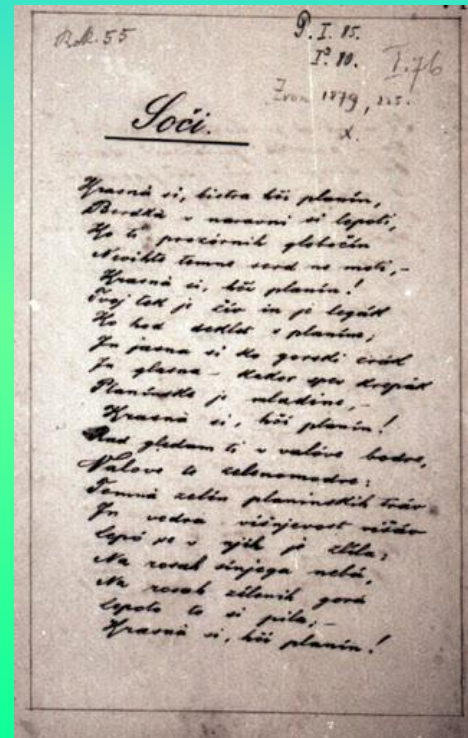 Rok. 55
P. I. 85.
I. 80.
I.76
Zvon 1879, 225.
X.
Soči.
Krasnà si, bistra hči planin,
Berdkà v naravni si lepoti,
Ko ti prozórnih globočin
Nevihte temne serd ne moti,–
Krasnà si, hči planin!
Tvoj tek je živ in je legák
Ko hod deklet s planine;
In jasna si ko gorski zrák
In glasna – kakor spev krepák
Planinske je mladine,–
Krasnà si, hči planin!
Rad gledam ti v valóve bodre,
Valove te zelenomodre:
Temnà zelén planinskih tráv
In vedra višnjevost višáv
Lepó se v njih je zlila;
Na rosah sinjega nebá,
Na rosah zélenih gorá
Lepoto to si pila;–
Krasnà si, hči planin!